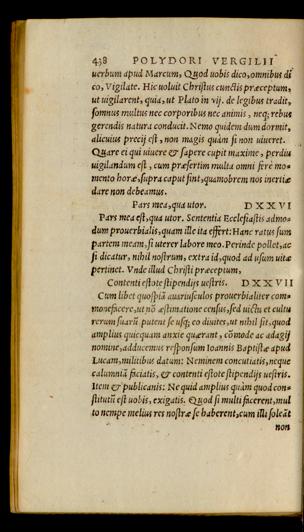 438 POLYDORI VERGILII
uerbum apud Marcum, Quod uobis dico, omnibus di
co, Vigilate. Hic uoluit Christus cunctis præceptum,
ut uigilarent, quia, ut Plato in vij. de legibus tradit,
somnus multus nec corporibus nec animis, neq; rebus
gerendis natura conducit. Nemo quidem dum dormit,
alicuius precij est, non magis quàm si non uiueret.
Quare ei qui uiuere & sapere cupit maxime, perdiu
uigilandum est, cum præsertim multa omni ferè mo-
mento horæ, supra caput sint, quamobrem nos inertiæ
dare non debeamus.
Pars mea, qua utor. DXXVI
Pars mea est, qua utor. Sententia Ecclesiastis admo-
dum prouerbialis, quam ille ita effert: Hanc ratus sum
partem meam, si uterer labore meo. Perinde pollet, ac
si dicatur, nihil nostrum, extra id, quod ad usum uitæ
pertinet. Vnde illud Christi præceptum,
Contenti estote stipendijs uestris. DXXVII
Cum libet quospiã auariusculos prouerbialiter com-
monefacere, ut nõ æstimatione census, sed uictu et cultu
rerum suarũ putent se usq; eo diuites, ut nihil sit, quod
amplius quicquam anxie quærant, cõmode ac adagij
nomine, adducemus responsum Ioannis Baptistæ apud
Lucam, militibus datum: Neminem concutiatis, neque
calumniã faciatis, & contenti estote stipendijs uestris.
Item & publicanis: Ne quid amplius quàm quod con-
stitutũ est uobis, exigatis. Quod si multi facerent, mul
to nempe melius res nostræ se haberent, cum illi soleãt
non